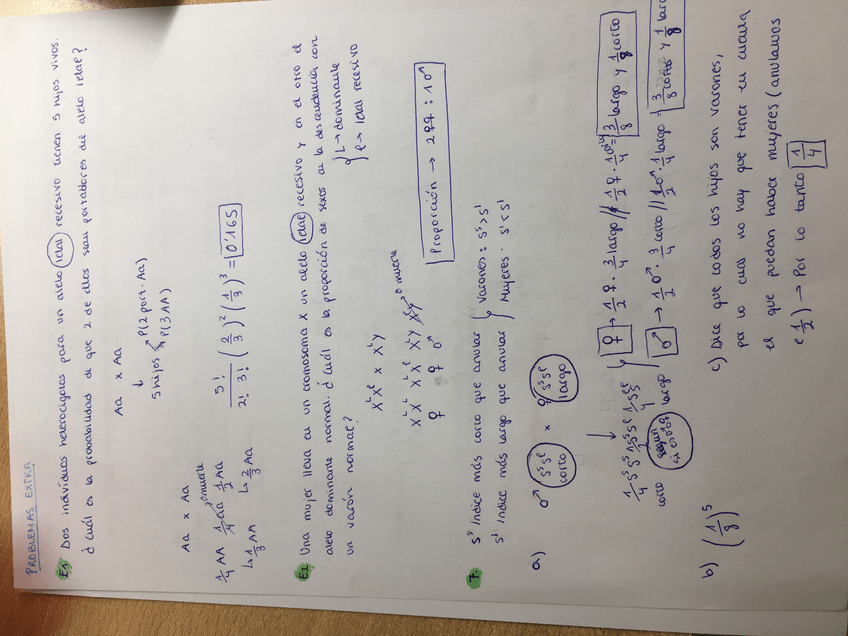 PROBLEMAS EXTRA
E1 Dos individuos heterocigotos para un alelo letal recesivo tienen 5 hijos vivos.
¿cuál es la probabilidad de que 2 de ellos sean portadores del alelo letal?
Aa x Aa
Aa x Aa
↓
5 hijos P(2 port. Aa)
P(3 AA)
1/4 AA 1/4 aa → muerte 1/2 Aa
↳ 1/3 AA ↳ 2/3 Aa
5!/(2! 3!) (2/3)² (1/3)³ = 0'165
E2 Una mujer lleva en un cromosoma X un alelo letal recesivo y en el otro el
alelo dominante normal. ¿cuál es la proporción de sexos en la descendencia con
un varón normal?
L → dominante
l → letal recesivo
X^L X^l x X^L Y
X^L X^L X^L X^l X^L Y X^l Y → muerte
♀ ♀ ♂
Proporción → 2♀♀ : 1♂
7. S^s Indice más corto que anular
S^l Indice más largo que anular
Varones: S^s > S^l
Mujeres: S^l < S^s
a) ♂ S^s S^l corto x ♀ S^s S^l largo
↓
1/4 S^s S^s 1/2 S^s S^l 1/4 S^l S^l
corto según sexo largo
♀ → 1/2 ♀ · 3/4 largo // 1/2 ♀ · 1/4 corto = 3/8 largo y 1/8 corto
♂ → 1/2 ♂ · 3/4 corto // 1/2 ♂ · 1/4 largo = 3/8 corto y 1/8 largo
b) (1/8)^5
c) Dice que todos los hijos son varones,
por lo cual no hay que tener en cuenta
el que puedan haber mujeres (anulamos
el 1/2) → Por lo tanto 1/4